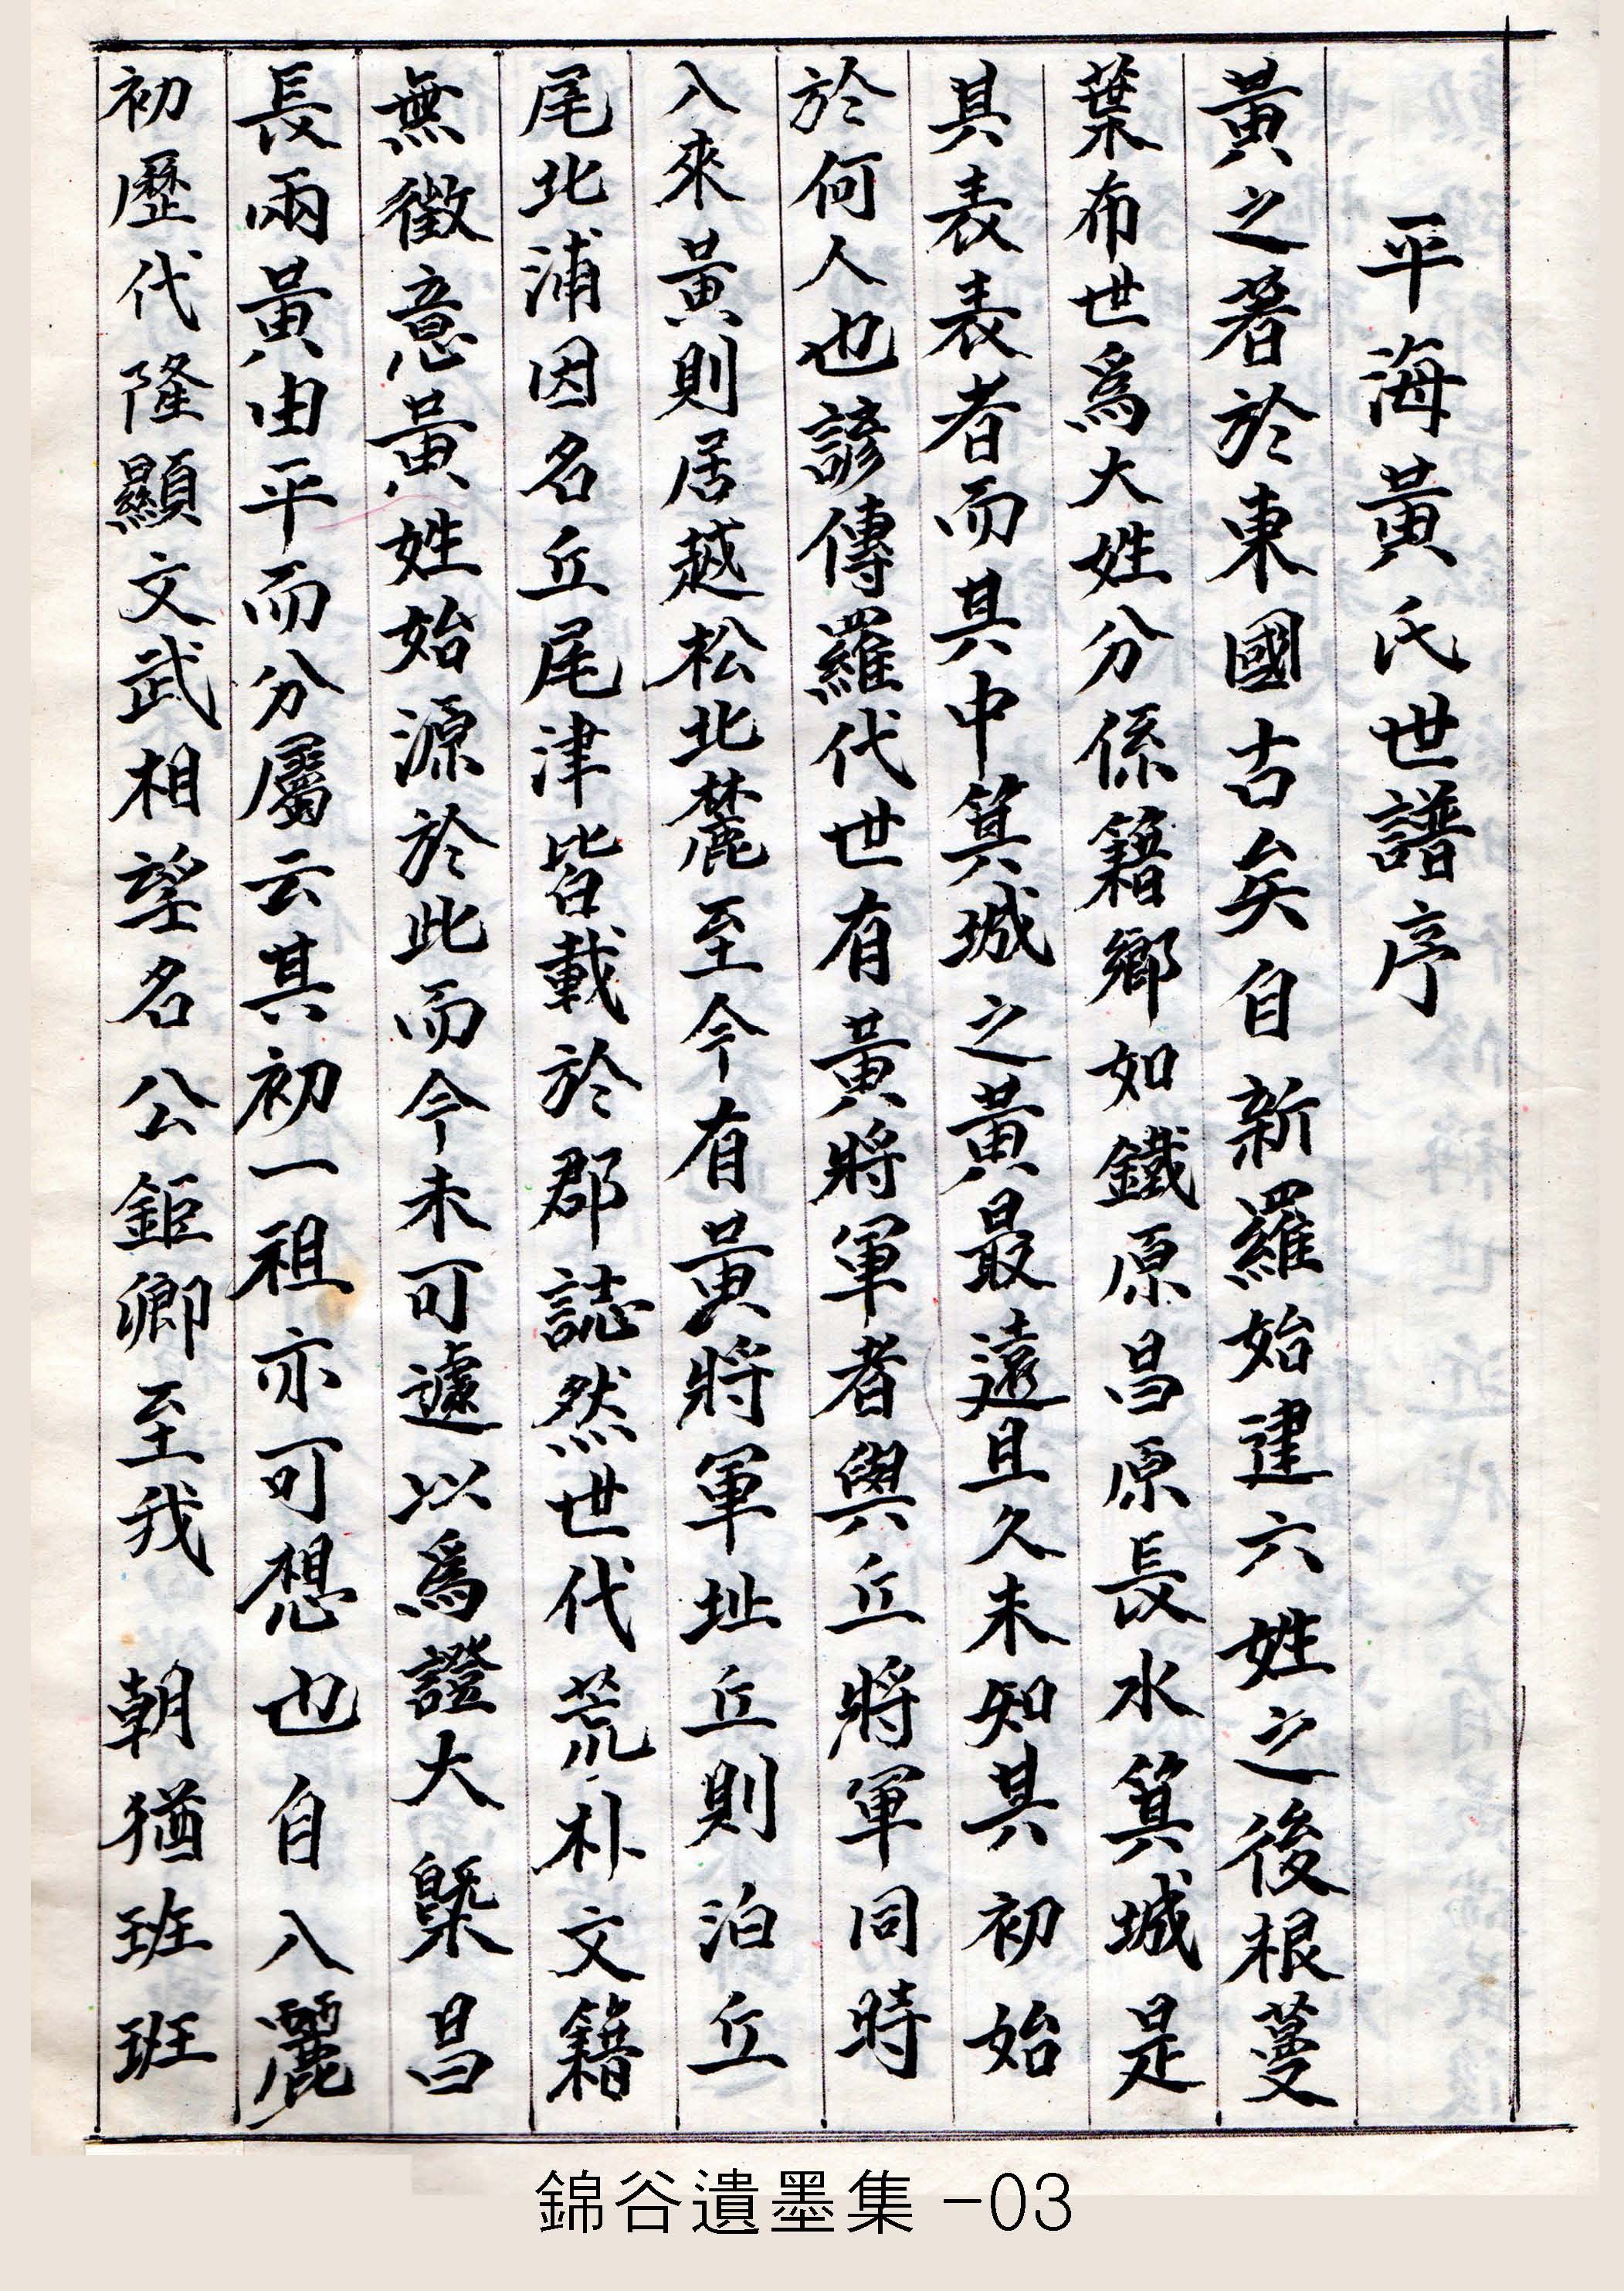 平海黃氏世譜序
黃之著於東國古矣自新羅始建六姓之後根蔓
葉布世爲大姓分係籍鄉如鐵原昌原長水箕城是
其表表者而其中箕城之黃最遠且久未知其初始
於何人也諺傳羅代世有黃將軍者與丘將軍同時
入來黃則居越松北麓至今有黃將軍址丘則泊丘
尾北浦因名丘尾津皆載於郡誌然世代荒朴文籍
無徵意黃姓始源於此而今未可遽以爲證大槩昌
長兩黃由平而分屬云其初一祖亦可想也自入麗
初歷代隆顯文武相望名公鉅卿至我朝猶班班
錦谷遺墨集 -03